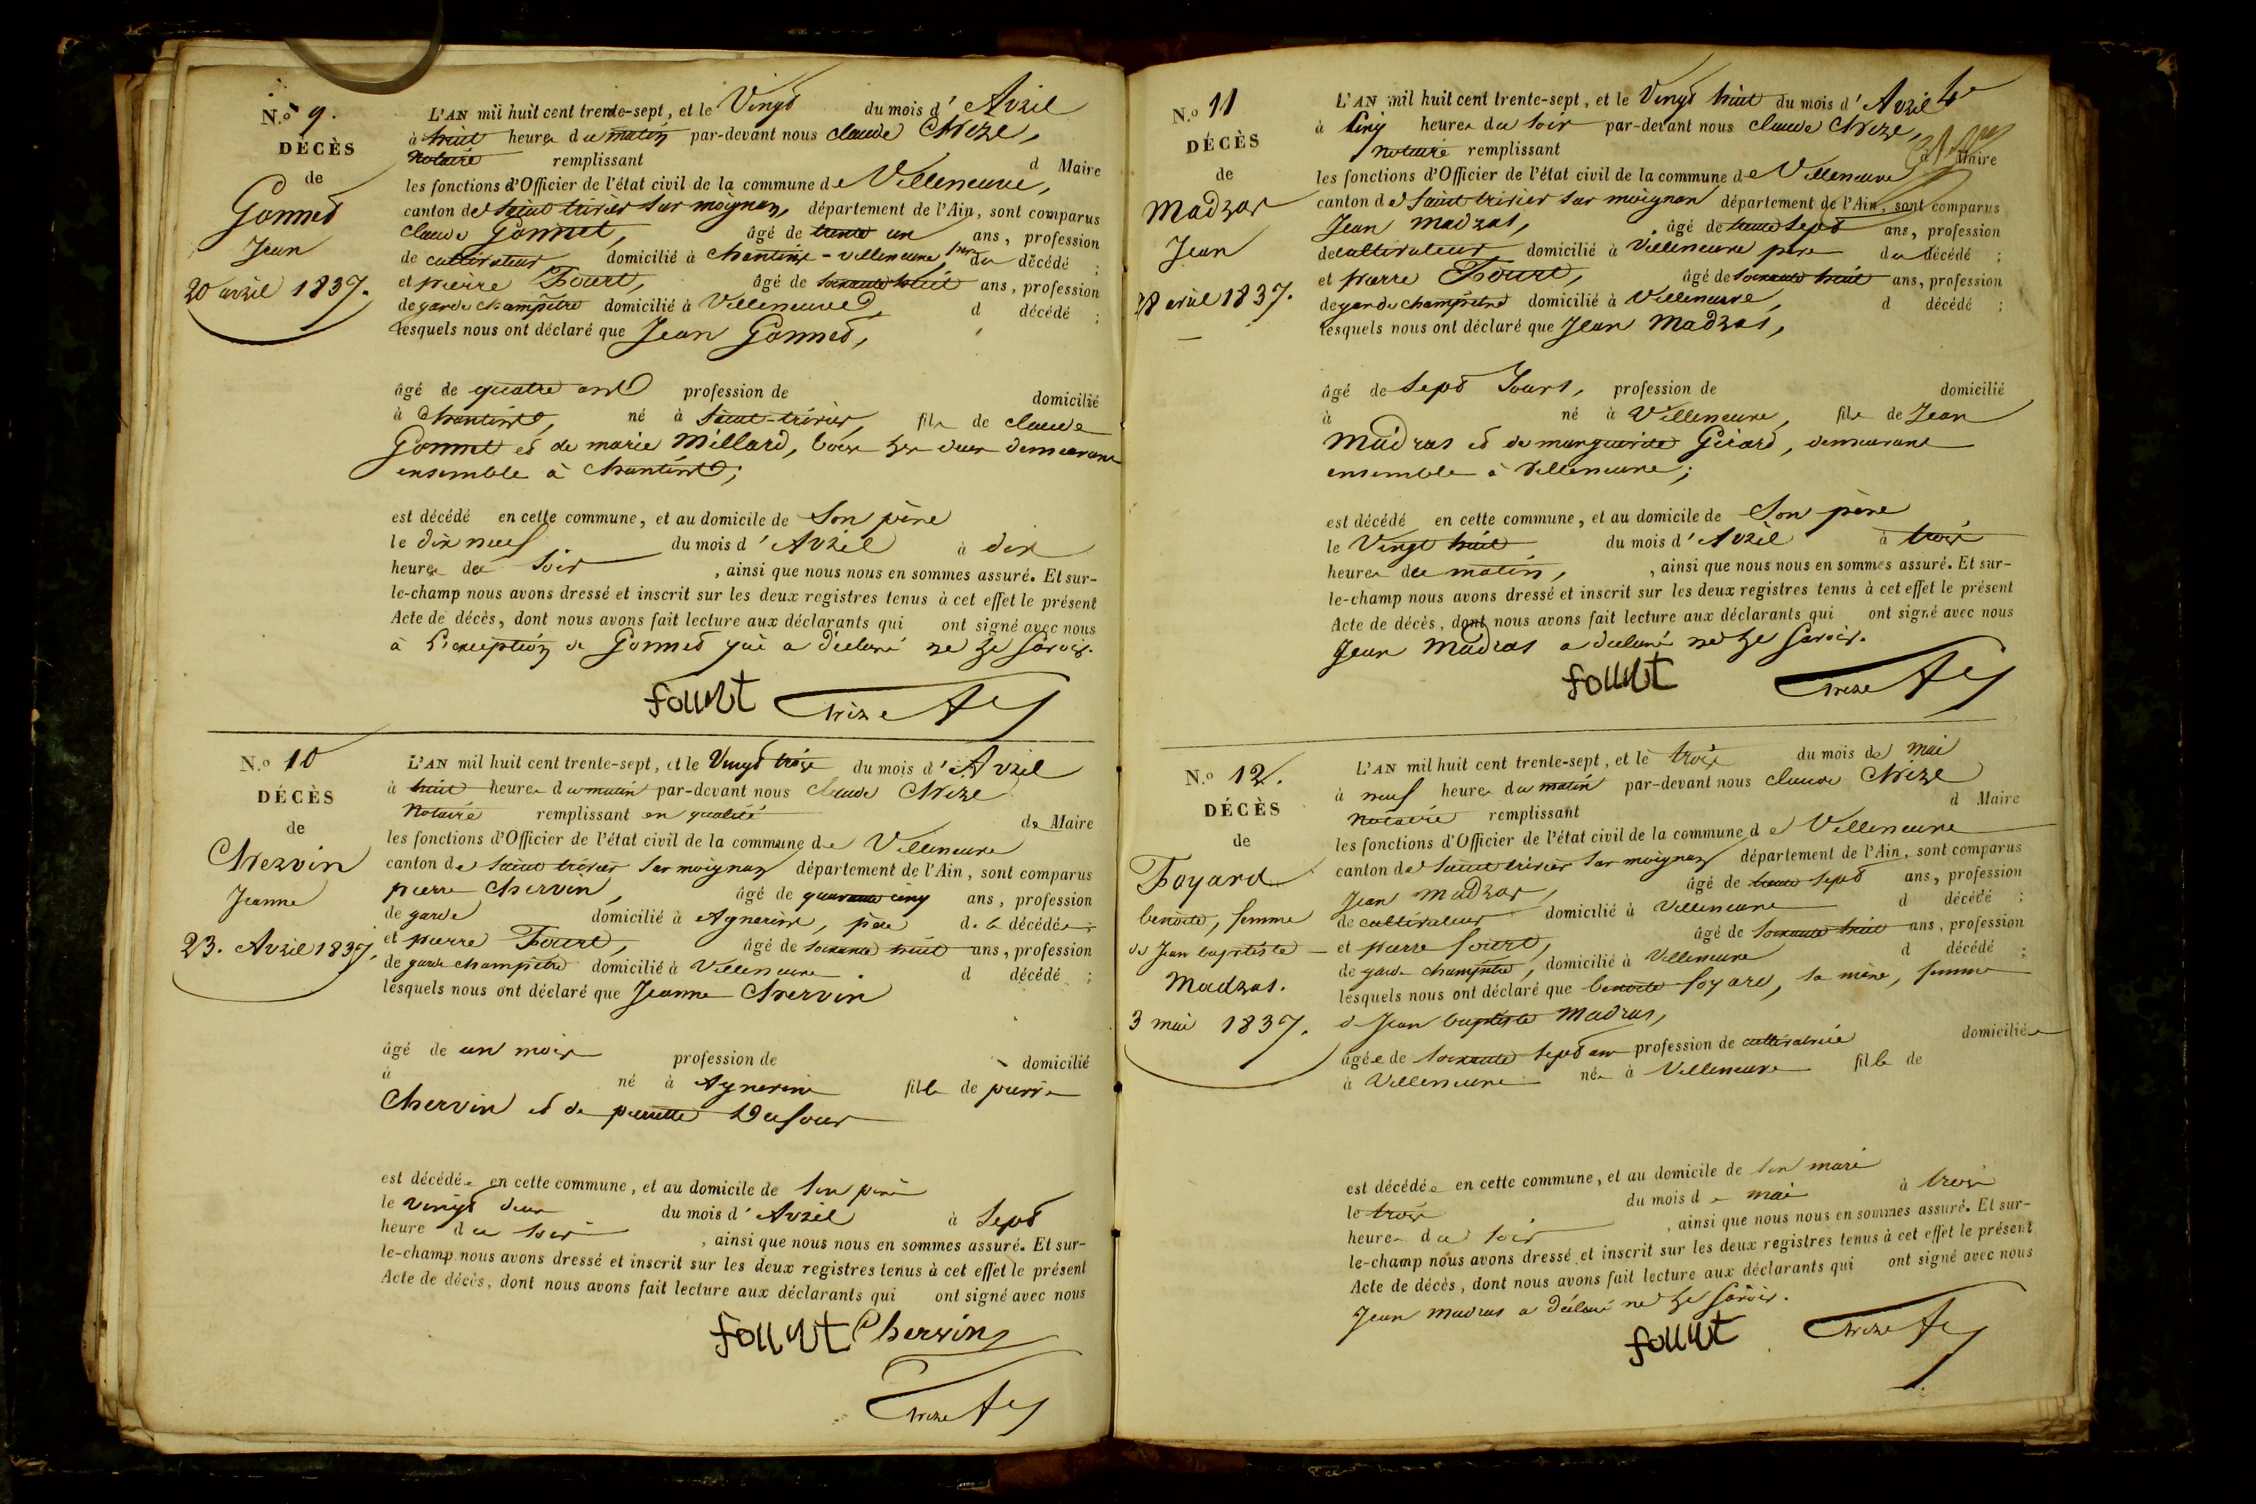 N.º 9.
DÉCÈS
de
Gonnet
Jean
20 avril 1837.
L'AN mil huit cent trente-sept, et le Vingt du mois d' Avril
à huit heures du matin par-devant nous claude Chize,
Notaire remplissant d Maire
les fonctions d'Officier de l'état civil de la commune de Villeneuve,
canton de Saint trivier sur moignan, département de l'Ain, sont comparus
claude Gonnet, âgé de trente un ans, profession
de cultivateur domicilié à Chanteins - villeneuve, père du décédé ;
et pierre Fourt, âgé de soixante huit ans, profession
de garde champêtre domicilié à Villeneuve, d décédé ;
lesquels nous ont déclaré que Jean Gonnet,
âgé de quatre ans profession de domicilié
à Chanteins, né à Saint-trivier, fils de claude
Gonnet et de marie Millard, tous les deux demeurant
ensemble à Chanteins;
est décédé en cette commune, et au domicile de Son père
le dix neuf du mois d' Avril à dix
heures du Soir , ainsi que nous nous en sommes assuré. Et sur-
le-champ nous avons dressé et inscrit sur les deux registres tenus à cet effet le présent
Acte de décès, dont nous avons fait lecture aux déclarants qui ont signé avec nous
à l'exception de Gonnet qui a déclaré ne le Savoir.
fourt Chize
N.º 10
DÉCÈS
de
Chervin
Jeanne
23. Avril 1837.
L'AN mil huit cent trente-sept, et le Vingt trois du mois d' Avril
à huit heures du matin par-devant nous Claude Chize
Notaire remplissant en qualité de Maire
les fonctions d'Officier de l'état civil de la commune de Villeneuve
canton de Saint trivier sur moignan département de l'Ain, sont comparus
pierre Chervin, âgé de quarante cinq ans, profession
de garde domicilié à Agnereins, père de la décédée ;
et pierre Fourt, âgé de soixante huit ans, profession
de garde champêtre domicilié à Villeneuve . d décédé ;
lesquels nous ont déclaré que Jeanne Chervin
âgé de un mois profession de domicilié
à né à Agnereins fille de pierre
Chervin et de pierrette Dufour
est décédée en cette commune, et au domicile de Son père
le vingt deux du mois d' Avril à Sept
heure du Soir , ainsi que nous nous en sommes assuré. Et sur-
le-champ nous avons dressé et inscrit sur les deux registres tenus à cet effet le présent
Acte de décès, dont nous avons fait lecture aux déclarants qui ont signé avec nous
fourt Chervin
Chize
N.º 11
DÉCÈS
de
Madras
Jean
28 avril 1837.
L'AN mil huit cent trente-sept, et le Vingt huit du mois d' Avril
à Cinq heures du Soir par-devant nous claude Chize,
Notaire remplissant d Maire
les fonctions d'Officier de l'état civil de la commune de Villeneuve
canton de Saint trivier sur moignan département de l'Ain, sont comparus
Jean madras, âgé de trente Sept ans, profession
de cultivateur domicilié à Villeneuve père du décédé ;
et pierre Fourt, âgé de soixante huit ans, profession
de garde champêtre domicilié à Villeneuve, d décédé ;
lesquels nous ont déclaré que Jean Madras,
âgé de Sept Jours, profession de domicilié
à né à Villeneuve, fils de Jean
Madras et de marguerite Gérard, demeurant
ensemble à Villeneuve;
est décédé en cette commune, et au domicile de Son père
le Vingt huit du mois d' Avril à trois
heures du matin, , ainsi que nous nous en sommes assuré. Et sur-
le-champ nous avons dressé et inscrit sur les deux registres tenus à cet effet le présent
Acte de décès, dont nous avons fait lecture aux déclarants qui ont signé avec nous
Jean Madras a déclaré ne le Savoir.
fourt Chize
N.º 12.
DÉCÈS
de
Foyard
benoite, femme
de Jean baptiste
Madras.
3 mai 1837.
L'AN mil huit cent trente-sept, et le trois du mois de mai
à neuf heures du matin par-devant nous claude Chize
Notaire remplissant d Maire
les fonctions d'Officier de l'état civil de la commune de Villeneuve
canton de Saint trivier sur moignan département de l'Ain, sont comparus
Jean Madras, âgé de trente Sept ans, profession
de cultivateur domicilié à Villeneuve d décédé ;
et pierre fourt, âgé de soixante huit ans, profession
de garde champêtre, domicilié à Villeneuve d décédé ;
lesquels nous ont déclaré que benoite foyard, sa mère, femme
de Jean baptiste Madras,
âgée de soixante Sept ans profession de cultivatrice domiciliée
à Villeneuve née à Villeneuve fille de
est décédée en cette commune, et au domicile de Son mari
le trois du mois de mai à trois
heures du Soir , ainsi que nous nous en sommes assuré. Et sur-
le-champ nous avons dressé et inscrit sur les deux registres tenus à cet effet le présent
Acte de décès, dont nous avons fait lecture aux déclarants qui ont signé avec nous
Jean Madras a déclaré ne le Savoir.
fourt Chize